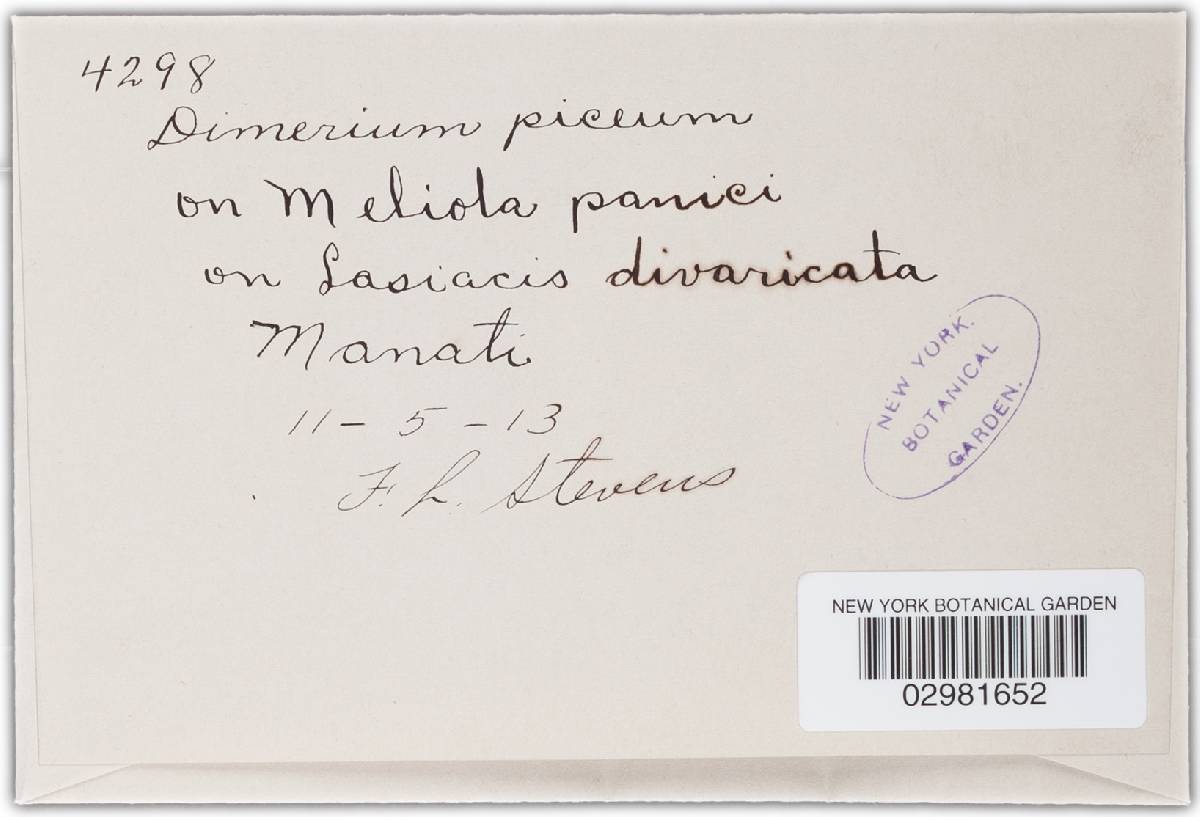 4298
Dimerium piceum
on Meliola panici
on Lasiacis divaricata
Manati
11-5-13
F. L. Stevens
NEW YORK.
BOTANICAL
GARDEN.
NEW YORK BOTANICAL GARDEN
02981652